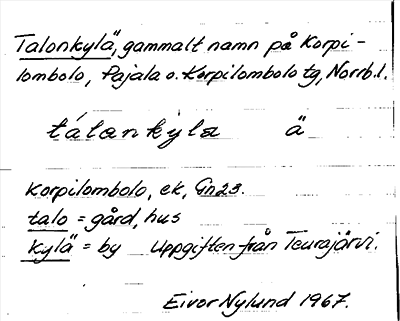 Talonkylä, gammalt namn på Korpi-
lombolo, Pajala o. Korpilombolo tg, Norrb. l.
tálankylä ä
Korpilombolo, ek, Gn23.
talo = gård, hus
kylä = by Uppgiften från Teurajärvi.
Eivor Nylund 1967.